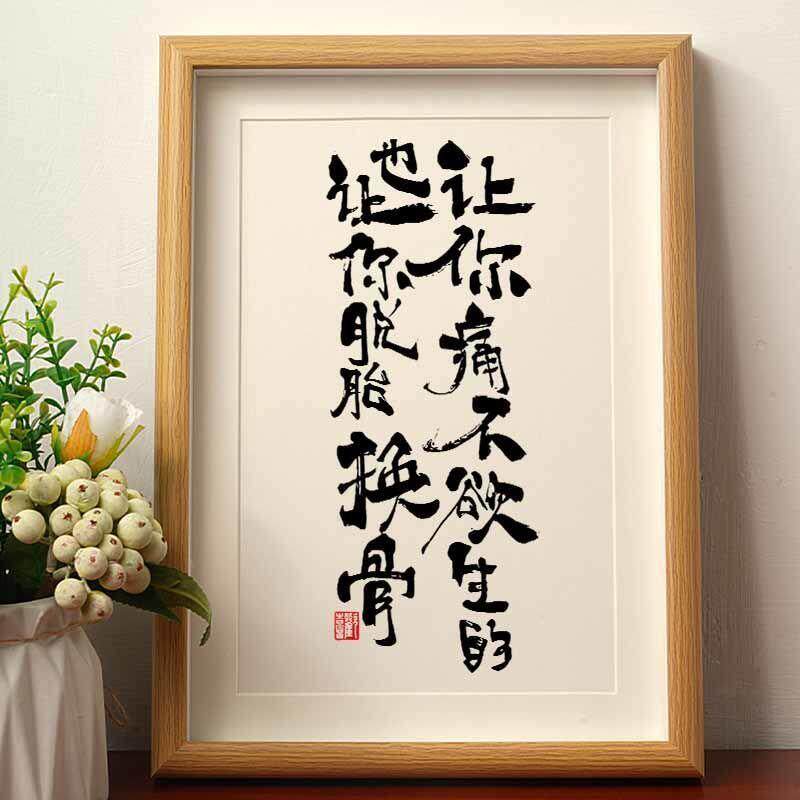 让你痛不欲生的
也让你脱胎换骨